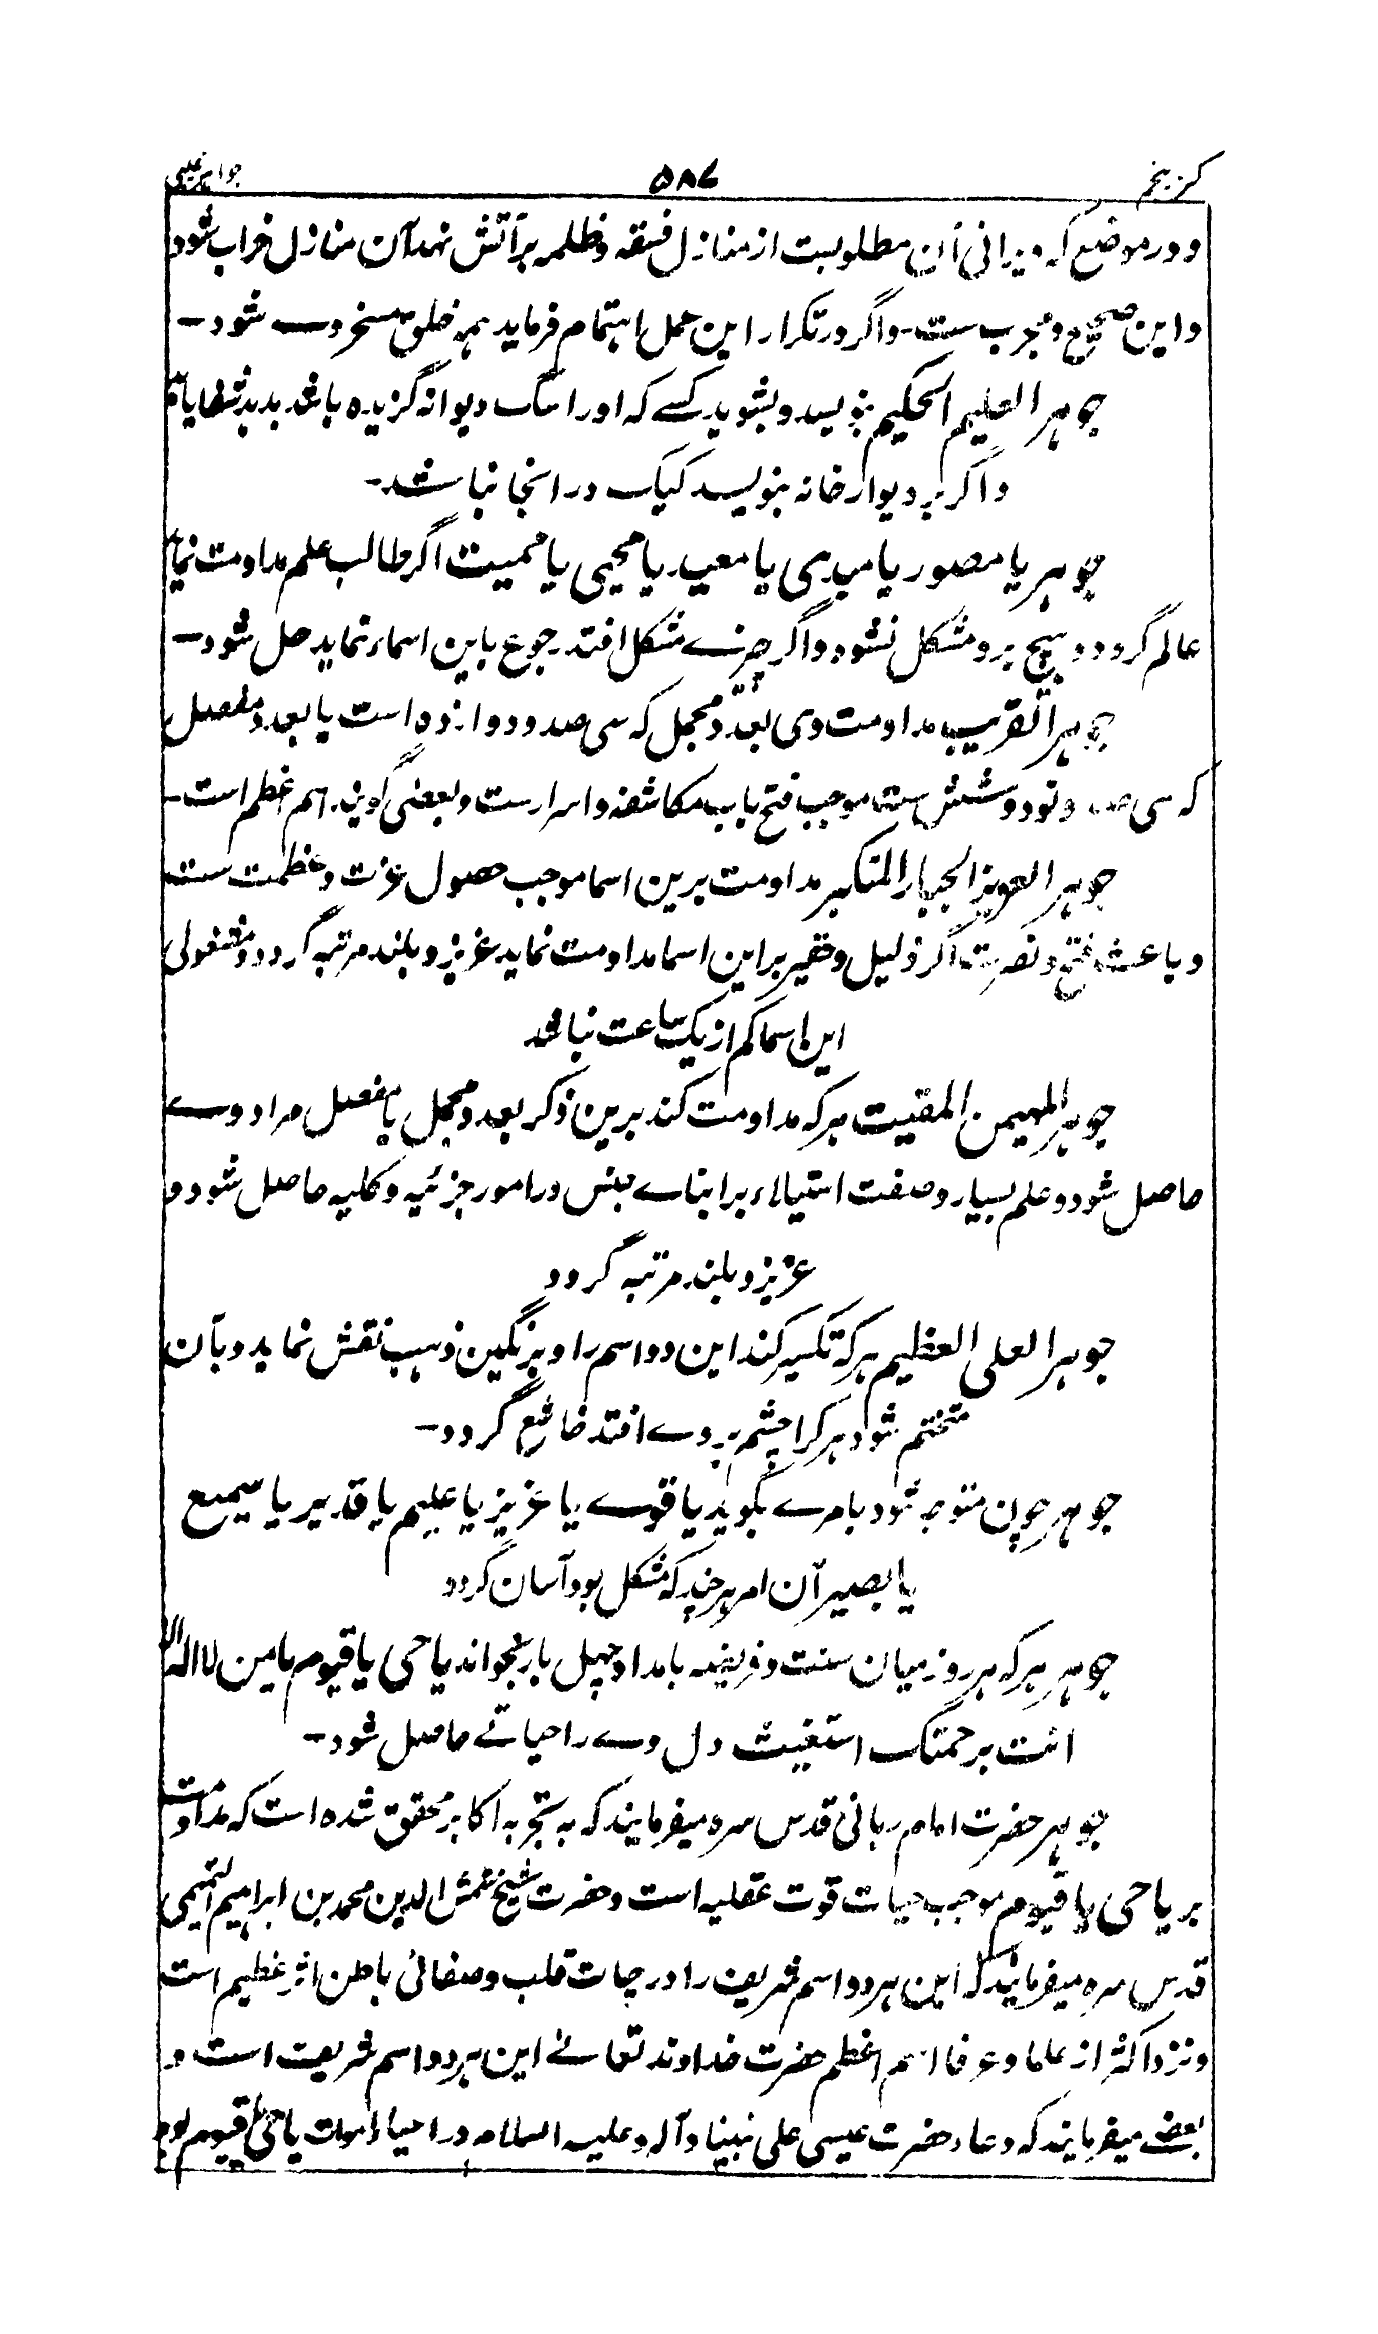 کنز پنجم ۵۸۷ جواهر غیبی
و در موضع که ویرانی آن مطلوبست از منازل فسقه و ظلمه بر آتش نهد آن منازل خراب شود
و این صحیح و مجرب ست ـ و اگر در تکرار این عمل اهتمام فرماید همه خلق مسخر وے شود ـ
جوهر العلیم الحکیم بنویسد و بشوید کسے که اورا سگ دیوانه گزیده باشد بدهد شفا یابد
و اگر بر دیوار خانه بنویسد کیک در انجا نباشد ـ
جوهر یا مصور یا مبدی یا معید یا محیی یا ممیت اگر طالب علم مداومت نماید
عالم گردد و هیچ برو مشکل نشود و اگر چیزے مشکل افتد رجوع باین اسماء نماید حل شود ـ
جوهر القریب مداومت وی بعدد مجمل که سی صد و دوازده است یا بعدد مفصل
که سی صد و نود و شش ست موجب فتح باب مکاشفه و اسرارست و بعضی گویند اسم اعظم است ـ
جوهر العزیز الجبار المتکبر مداومت برین اسما موجب حصول عزت و عظمت ست
و باعث فتح و نصرت اگر ذلیل و حقیر بر این اسما مداومت نماید عزیز و بلند مرتبه گردد و مشغولی
این اسما کم از یک ساعت نباشد
جوهر المهیمن المقیت هر که مداومت کند برین ذکر بعدد مجمل یا مفصل مراد وے
حاصل شود و علم بسیار و صفت استیلاء بر ابناے جنس در امور جزئیه و کلیه حاصل شود و
عزیز و بلند مرتبه گردد
جوهر العلی العظیم هر که تکسیر کند این دو اسم را و بر نگین ذهب نقش نماید و بآن
متختم شود هر کرا چشم بر وے افتد خاشع گردد ـ
جوهر چون متوجه شود بامرے بگوید یا قوے یا عزیز یا علیم یا قدیر یا سمیع
یا بصیر آن امر هر چند که مشکل بود آسان گردد
جوهر هر که هر روز میان سنت و فریضه بامداد چهل بار بخواند یا حی یا قیوم یا من لا اله الا
انت برحمتک استغیث دل وے را حیاتے حاصل شود ـ
جوهر حضرت امام ربانی قدس سره میفرمایند که به تجربه اکابر محقق شده است که مداومت
بر یا حی یا قیوم موجب حیات قوت عقلیه است و حضرت شیخ شمس الدین محمد بن ابراهیم التمیمی
قدس سره میفرمایند که این هر دو اسم شریف را در حیات قلب و صفائی باطن اثر عظیم است
و نزد اکثر از علما و عرفا اسم اعظم حضرت خداوند تعالے این هر دو اسم شریف است و
بعضے میفرمایند که دعاء حضرت عیسی علی نبینا و آله و علیه السلام در احیاء اموات یا حی یا قیوم بود